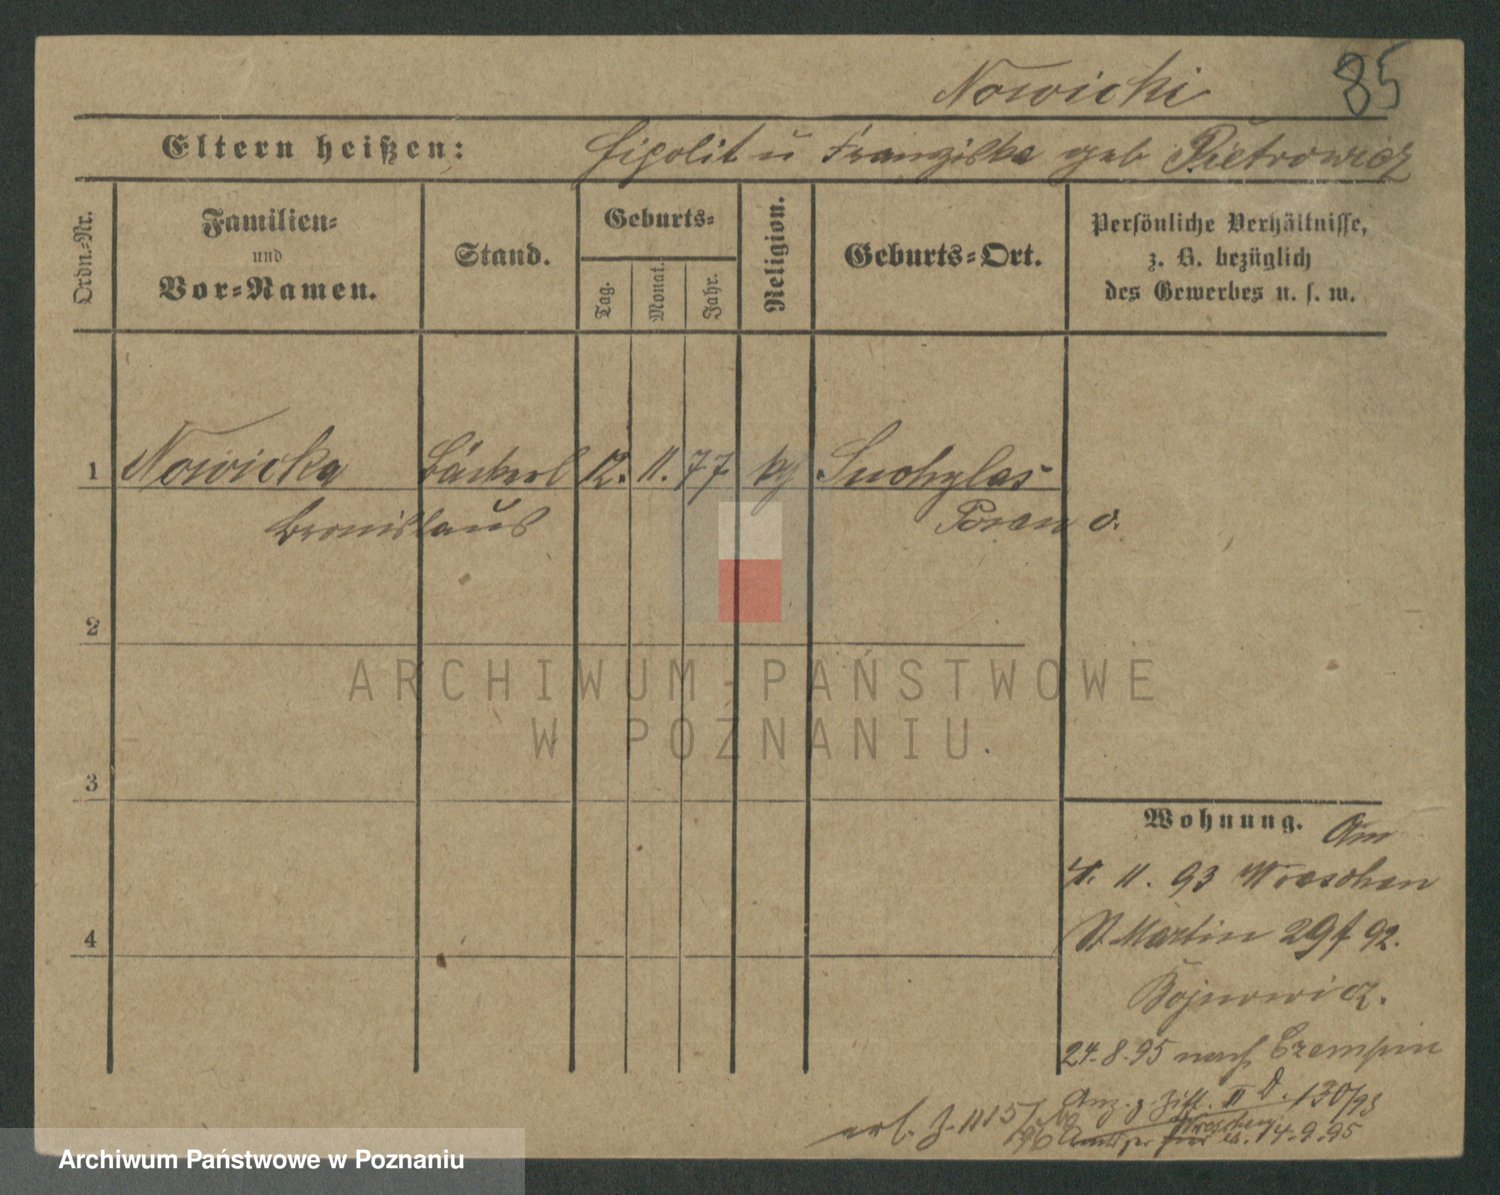 Nowicki 85
Eltern heißen: Hipolit u Franziska geb Pietrowicz
Ordn.-Nr.
Familien-
und
Vor-Namen.
Stand.
Geburts-
Tag.
Monat.
Jahr.
Religion.
Geburts-Ort.
Persönliche Verhältnisse,
z. B. bezüglich
des Gewerbes u. s. w.
1 Nowicka Bäckerl 12. 11. 77 kg Suchylas
Bronislaus Posen O.
2
ARCHIWUM PAŃSTWOWE
W POZNANIU
3
Wohnung. Am
4. 11. 93 Wreschen
4 St Martin 29 f 92.
Bojnowicz.
24.8.95 nach Czempin
Anz. z. Ziff. II D. 130/93
erl. J. 1115
Wreschen
14.9.95
Archiwum Państwowe w Poznaniu